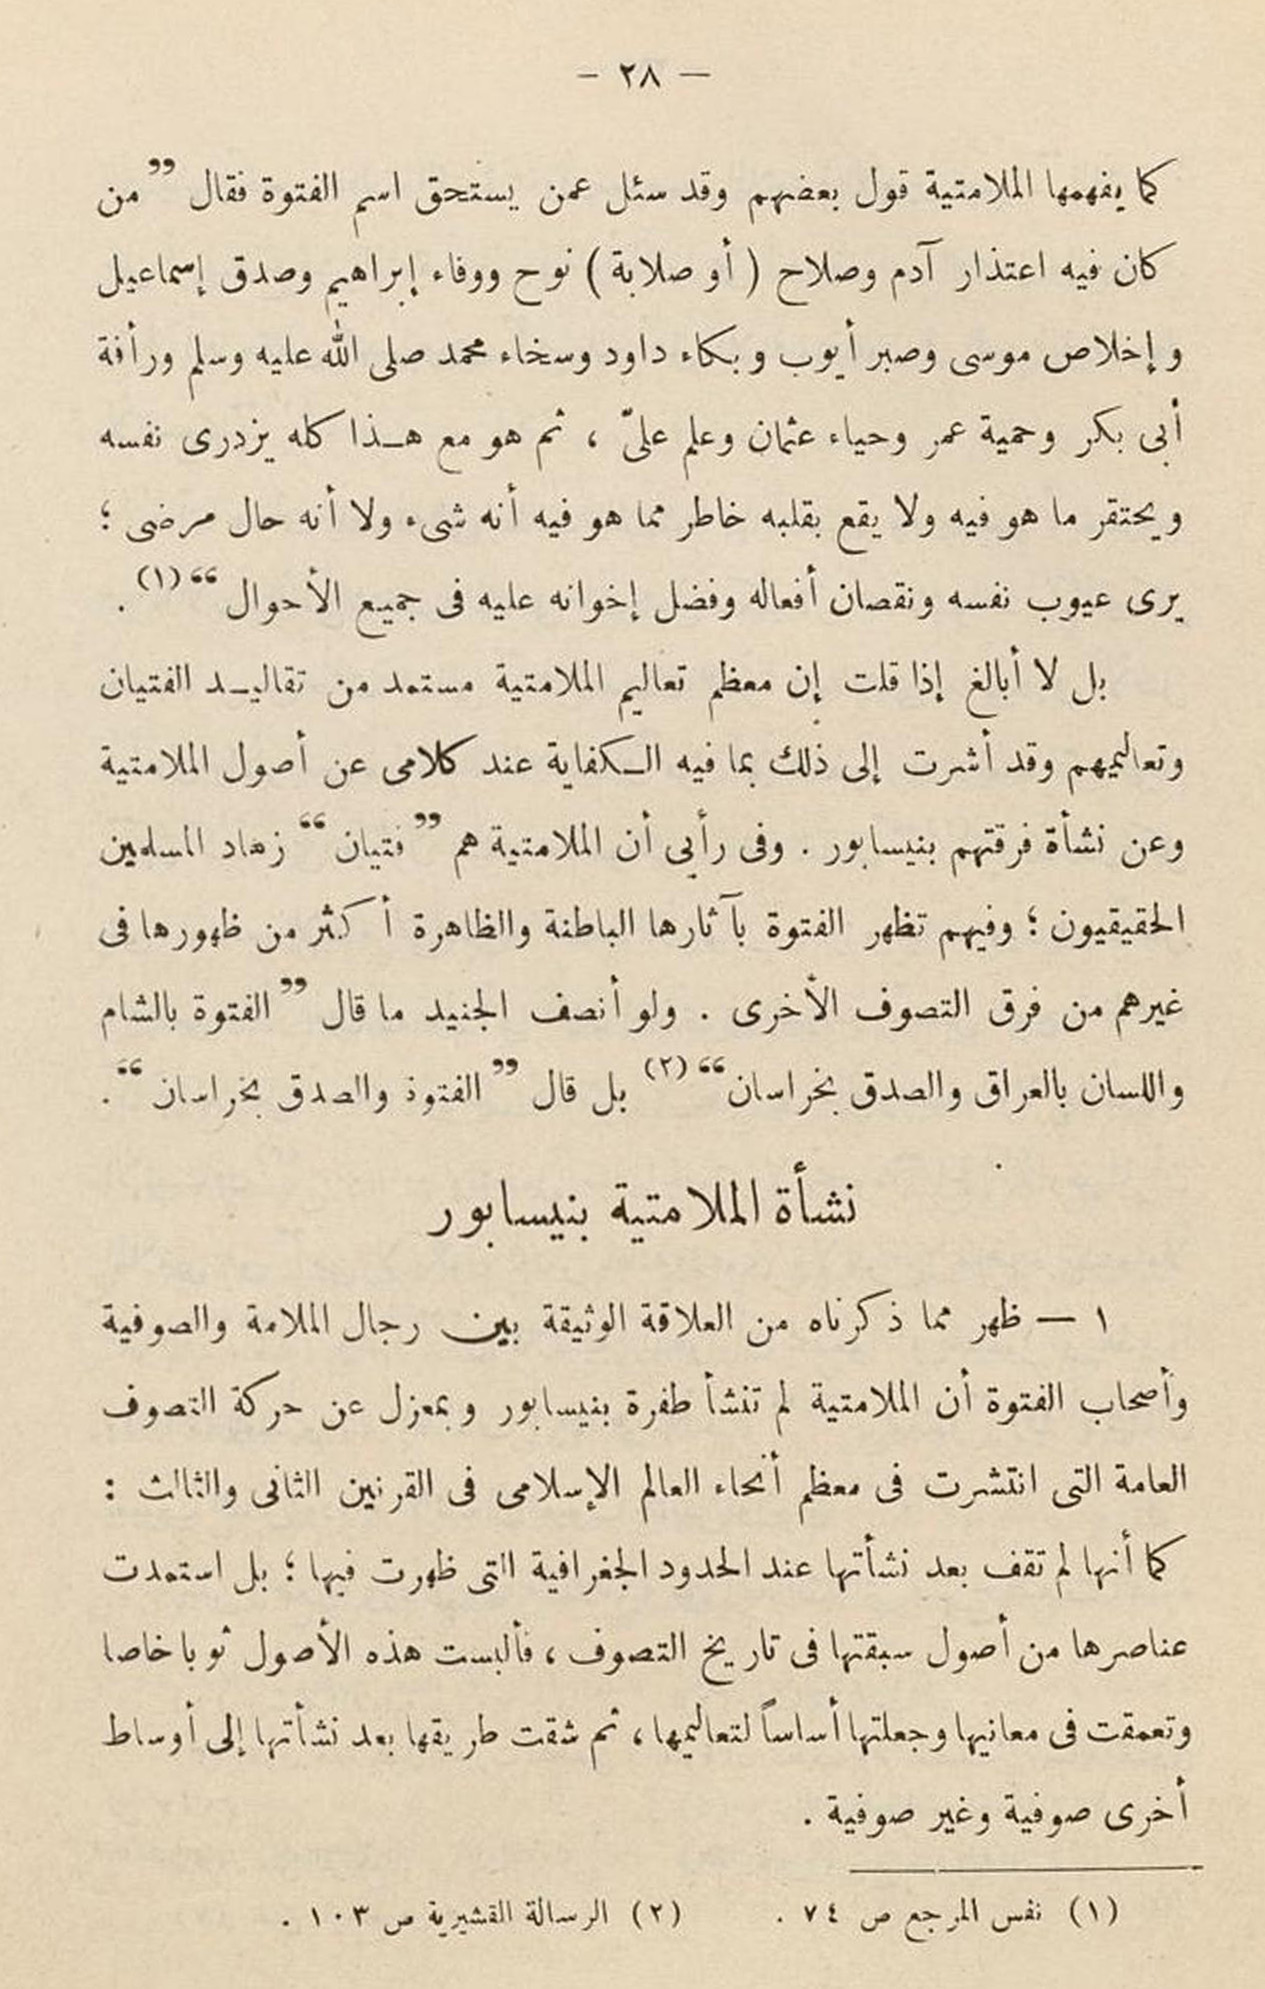 — ٢٨ —
كما يفهمها الملامتية قول بعضهم وقد سئل عمن يستحق اسم الفتوة فقال ”من
كان فيه اعتذار آدم وصلاح ( أو صلابة ) نوح ووفاء إبراهيم وصدق إسماعيل
وإخلاص موسى وصبر أيوب وبكاء داود وسخاء محمد صلى الله عليه وسلم ورأفة
أبى بكر وحمية عمر وحياء عثمان وعلم علىّ ، ثم هو مع هـذا كله يزدرى نفسه
ويحتقر ما هو فيه ولا يقع بقلبه خاطر مما هو فيه أنه شىء ولا أنه حال مرضى ؛
يرى عيوب نفسه ونقصان أفعاله وفضل إخوانه عليه فى جميع الأحوال“(١) .
بل لا أبالغ إذا قلت إن معظم تعاليم الملامتية مستمد من تقاليـد الفتيان
وتعاليمهم وقد أشرت إلى ذلك بما فيه الـكفاية عند كلامى عن أصول الملامتية
وعن نشأة فرقتهم بنيسابور . وفى رأيى أن الملامتية هم ”فتيان“ زهاد المسلمين
الحقيقيون ؛ وفيهم تظهر الفتوة بآثارها الباطنة والظاهرة أكثر من ظهورها فى
غيرهم من فرق التصوف الأخرى . ولو أنصف الجنيد ما قال ”الفتوة بالشام
واللسان بالعراق والصدق بخراسان“(٢) بل قال ”الفتوة والصدق بخراسان“ .
نشأة الملامتية بنيسابور
١ — ظهر مما ذكرناه من العلاقة الوثيقة بين رجال الملامة والصوفية
وأصحاب الفتوة أن الملامتية لم تنشأ طفرة بنيسابور وبمعزل عن حركة التصوف
العامة التى انتشرت فى معظم أنحاء العالم الإسلامى فى القرنين الثانى والثالث :
كما أنها لم تقف بعد نشأتها عند الحدود الجغرافية التى ظهرت فيها ؛ بل استمدت
عناصرها من أصول سبقتها فى تاريخ التصوف ، فألبست هذه الأصول ثوبا خاصا
وتعمقت فى معانيها وجعلتها أساساً لتعاليمها ، ثم شقت طريقها بعد نشأتها إلى أوساط
أخرى صوفية وغير صوفية .
(١) نفس المرجع ص ٧٤ . (٢) الرسالة القشيرية ص ١٠٣ .